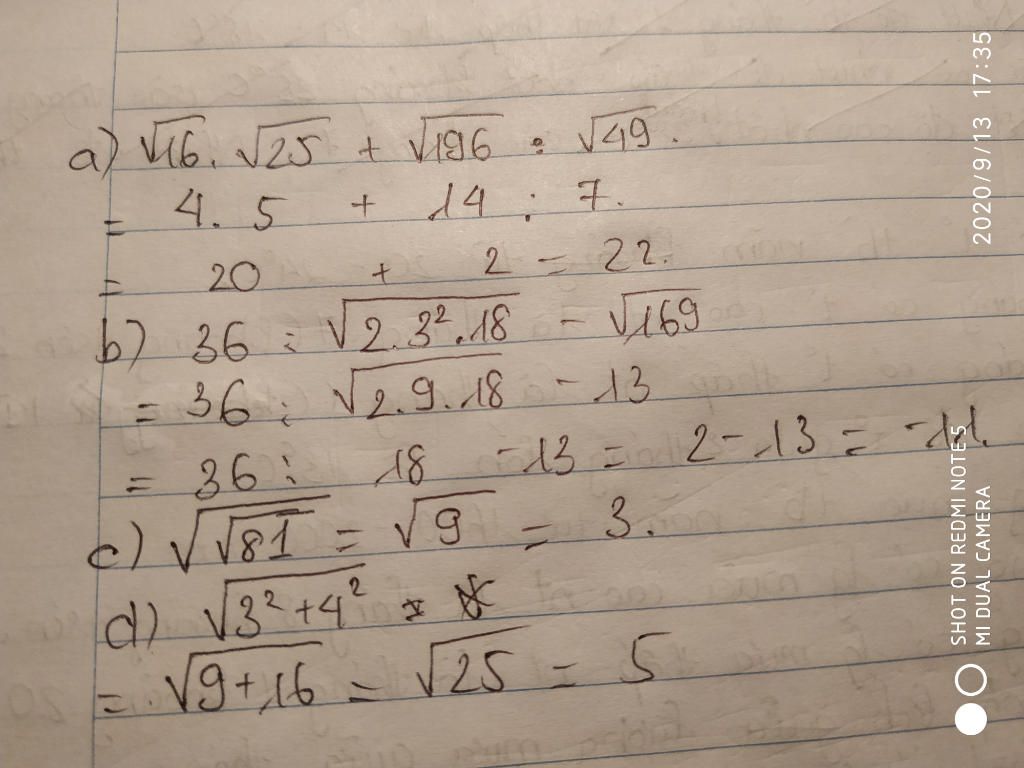 a) √16 . √25 + √196 : √49.
= 4. 5 + 14 : 7.
= 20 + 2 = 22.
b) 36 : √2.3².18 - √169
= 36 : √2.9.18 - 13
= 36 : 18 - 13 = 2 - 13 = -11.
c) √√81 = √9 = 3.
d) √3²+4² =
= √9+16 = √25 = 5
2020/9/13 17:35
SHOT ON REDMI NOTE 5
MI DUAL CAMERA